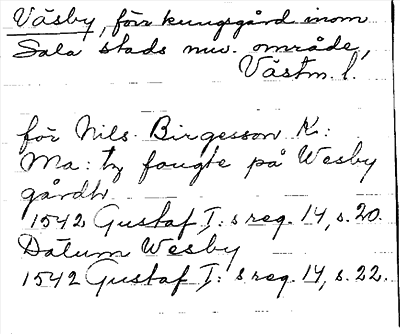 Väsby, förr kungsgård inom
Sala stads nuv. område,
Västm. l.
för Nils Birgesson K:
Ma: tz fougte på Wesby
gårdh
1542 Gustaf I: s reg. 14, s. 20.
Datum Wesby
1542 Gustaf I: s reg. 14, s. 22.